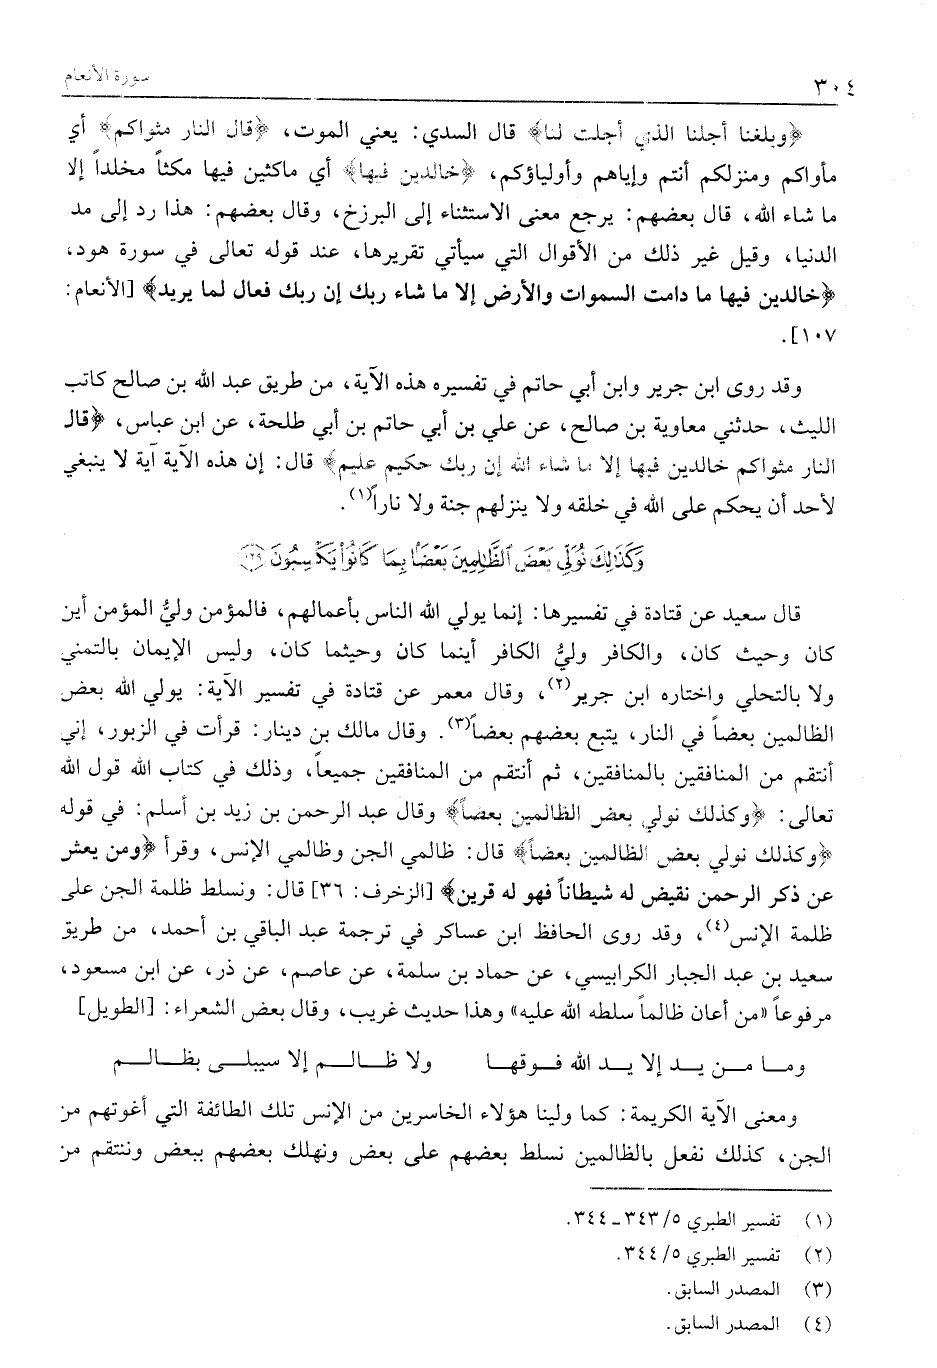 ٣٠٤ سورة الأنعام
﴿وبلغنا أجلنا الذي أجلت لنا﴾ قال السدي: يعني الموت، ﴿قال النار مثواكم﴾ أي
مأواكم ومنزلكم أنتم وإياهم وأولياؤكم، ﴿خالدين فيها﴾ أي ماكثين فيها مكثاً مخلداً إلا
ما شاء الله، قال بعضهم: يرجع معنى الاستثناء إلى البرزخ، وقال بعضهم: هذا رد إلى مد
الدنيا، وقيل غير ذلك من الأقوال التي سيأتي تقريرها، عند قوله تعالى في سورة هود،
﴿خالدين فيها ما دامت السموات والأرض إلا ما شاء ربك إن ربك فعال لما يريد﴾ [الأنعام:
١٠٧].
وقد روى ابن جرير وابن أبي حاتم في تفسيره هذه الآية، من طريق عبد الله بن صالح كاتب
الليث، حدثني معاوية بن صالح، عن علي بن أبي حاتم بن أبي طلحة، عن ابن عباس، ﴿قال
النار مثواكم خالدين فيها إلا ما شاء الله إن ربك حكيم عليم﴾ قال: إن هذه الآية آية لا ينبغي
لأحد أن يحكم على الله في خلقه ولا ينزلهم جنة ولا ناراً(١).
وَكَذَٰلِكَ نُوَلِّي بَعْضَ ٱلظَّٰلِمِينَ بَعْضًۢا بِمَا كَانُوا۟ يَكْسِبُونَ ﴿١٢٩﴾
قال سعيد عن قتادة في تفسيرها: إنما يولي الله الناس بأعمالهم، فالمؤمن وليُّ المؤمن أين
كان وحيث كان، والكافر وليُّ الكافر أينما كان وحيثما كان، وليس الإيمان بالتمني
ولا بالتحلي واختاره ابن جرير(٢)، وقال معمر عن قتادة في تفسير الآية: يولي الله بعض
الظالمين بعضاً في النار، يتبع بعضهم بعضاً(٣). وقال مالك بن دينار: قرأت في الزبور، إني
أنتقم من المنافقين بالمنافقين، ثم أنتقم من المنافقين جميعاً، وذلك في كتاب الله قول الله
تعالى: ﴿وكذلك نولي بعض الظالمين بعضاً﴾ وقال عبد الرحمن بن زيد بن أسلم: في قوله
﴿وكذلك نولي بعض الظالمين بعضاً﴾ قال: ظالمي الجن وظالمي الإنس، وقرأ ﴿ومن يعش
عن ذكر الرحمن نقيض له شيطاناً فهو له قرين﴾ [الزخرف: ٣٦] قال: ونسلط ظلمة الجن على
ظلمة الإنس(٤)، وقد روى الحافظ ابن عساكر في ترجمة عبد الباقي بن أحمد، من طريق
سعيد بن عبد الجبار الكرابيسي، عن حماد بن سلمة، عن عاصم، عن ذر، عن ابن مسعود،
مرفوعاً «من أعان ظالماً سلطه الله عليه» وهذا حديث غريب، وقال بعض الشعراء: [الطويل]
وما من يد إلا يد الله فوقها ولا ظالم إلا سيبلى بظالم
ومعنى الآية الكريمة: كما ولينا هؤلاء الخاسرين من الإنس تلك الطائفة التي أغوتهم من
الجن، كذلك نفعل بالظالمين نسلط بعضهم على بعض ونهلك بعضهم ببعض وننتقم من
(١) تفسير الطبري ٥/ ٣٤٣ ـ ٣٤٤.
(٢) تفسير الطبري ٥/ ٣٤٤.
(٣) المصدر السابق.
(٤) المصدر السابق.